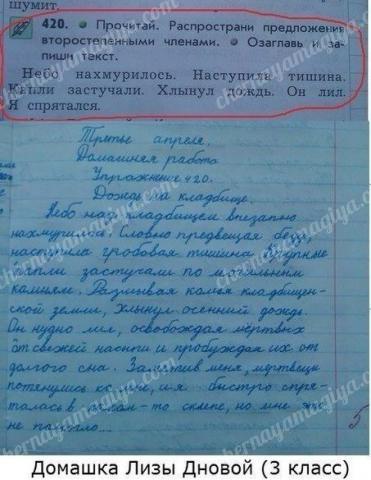 шумит.
420. • Прочитай. Распространи предложения
второстепенными членами. • Озаглавь и за-
пиши текст.
Небо нахмурилось. Наступила тишина.
Капли застучали. Хлынул дождь. Он лил.
Я спрятался.
Третье апреля.
Домашняя работа
Упражнение 420.
Дождь на кладбище.
Небо над кладбищем внезапно
нахмурилось. Словно предвещая беду,
наступила гробовая тишина. Крупные
капли застучали по могильным
камням. Размывая комья кладбищен-
ской земли, хлынул осенний дождь.
Он нудно лил, освобождая мёртвых
от свежей насыпи и пробуждая их от
долгого сна. Заметив меня, мертвецы
потянулись ко мне, и я быстро спря-
талась в каком-то склепе, но мне это
не помогло...
5
chernayamagiya.com
Домашка Лизы Дновой (3 класс)